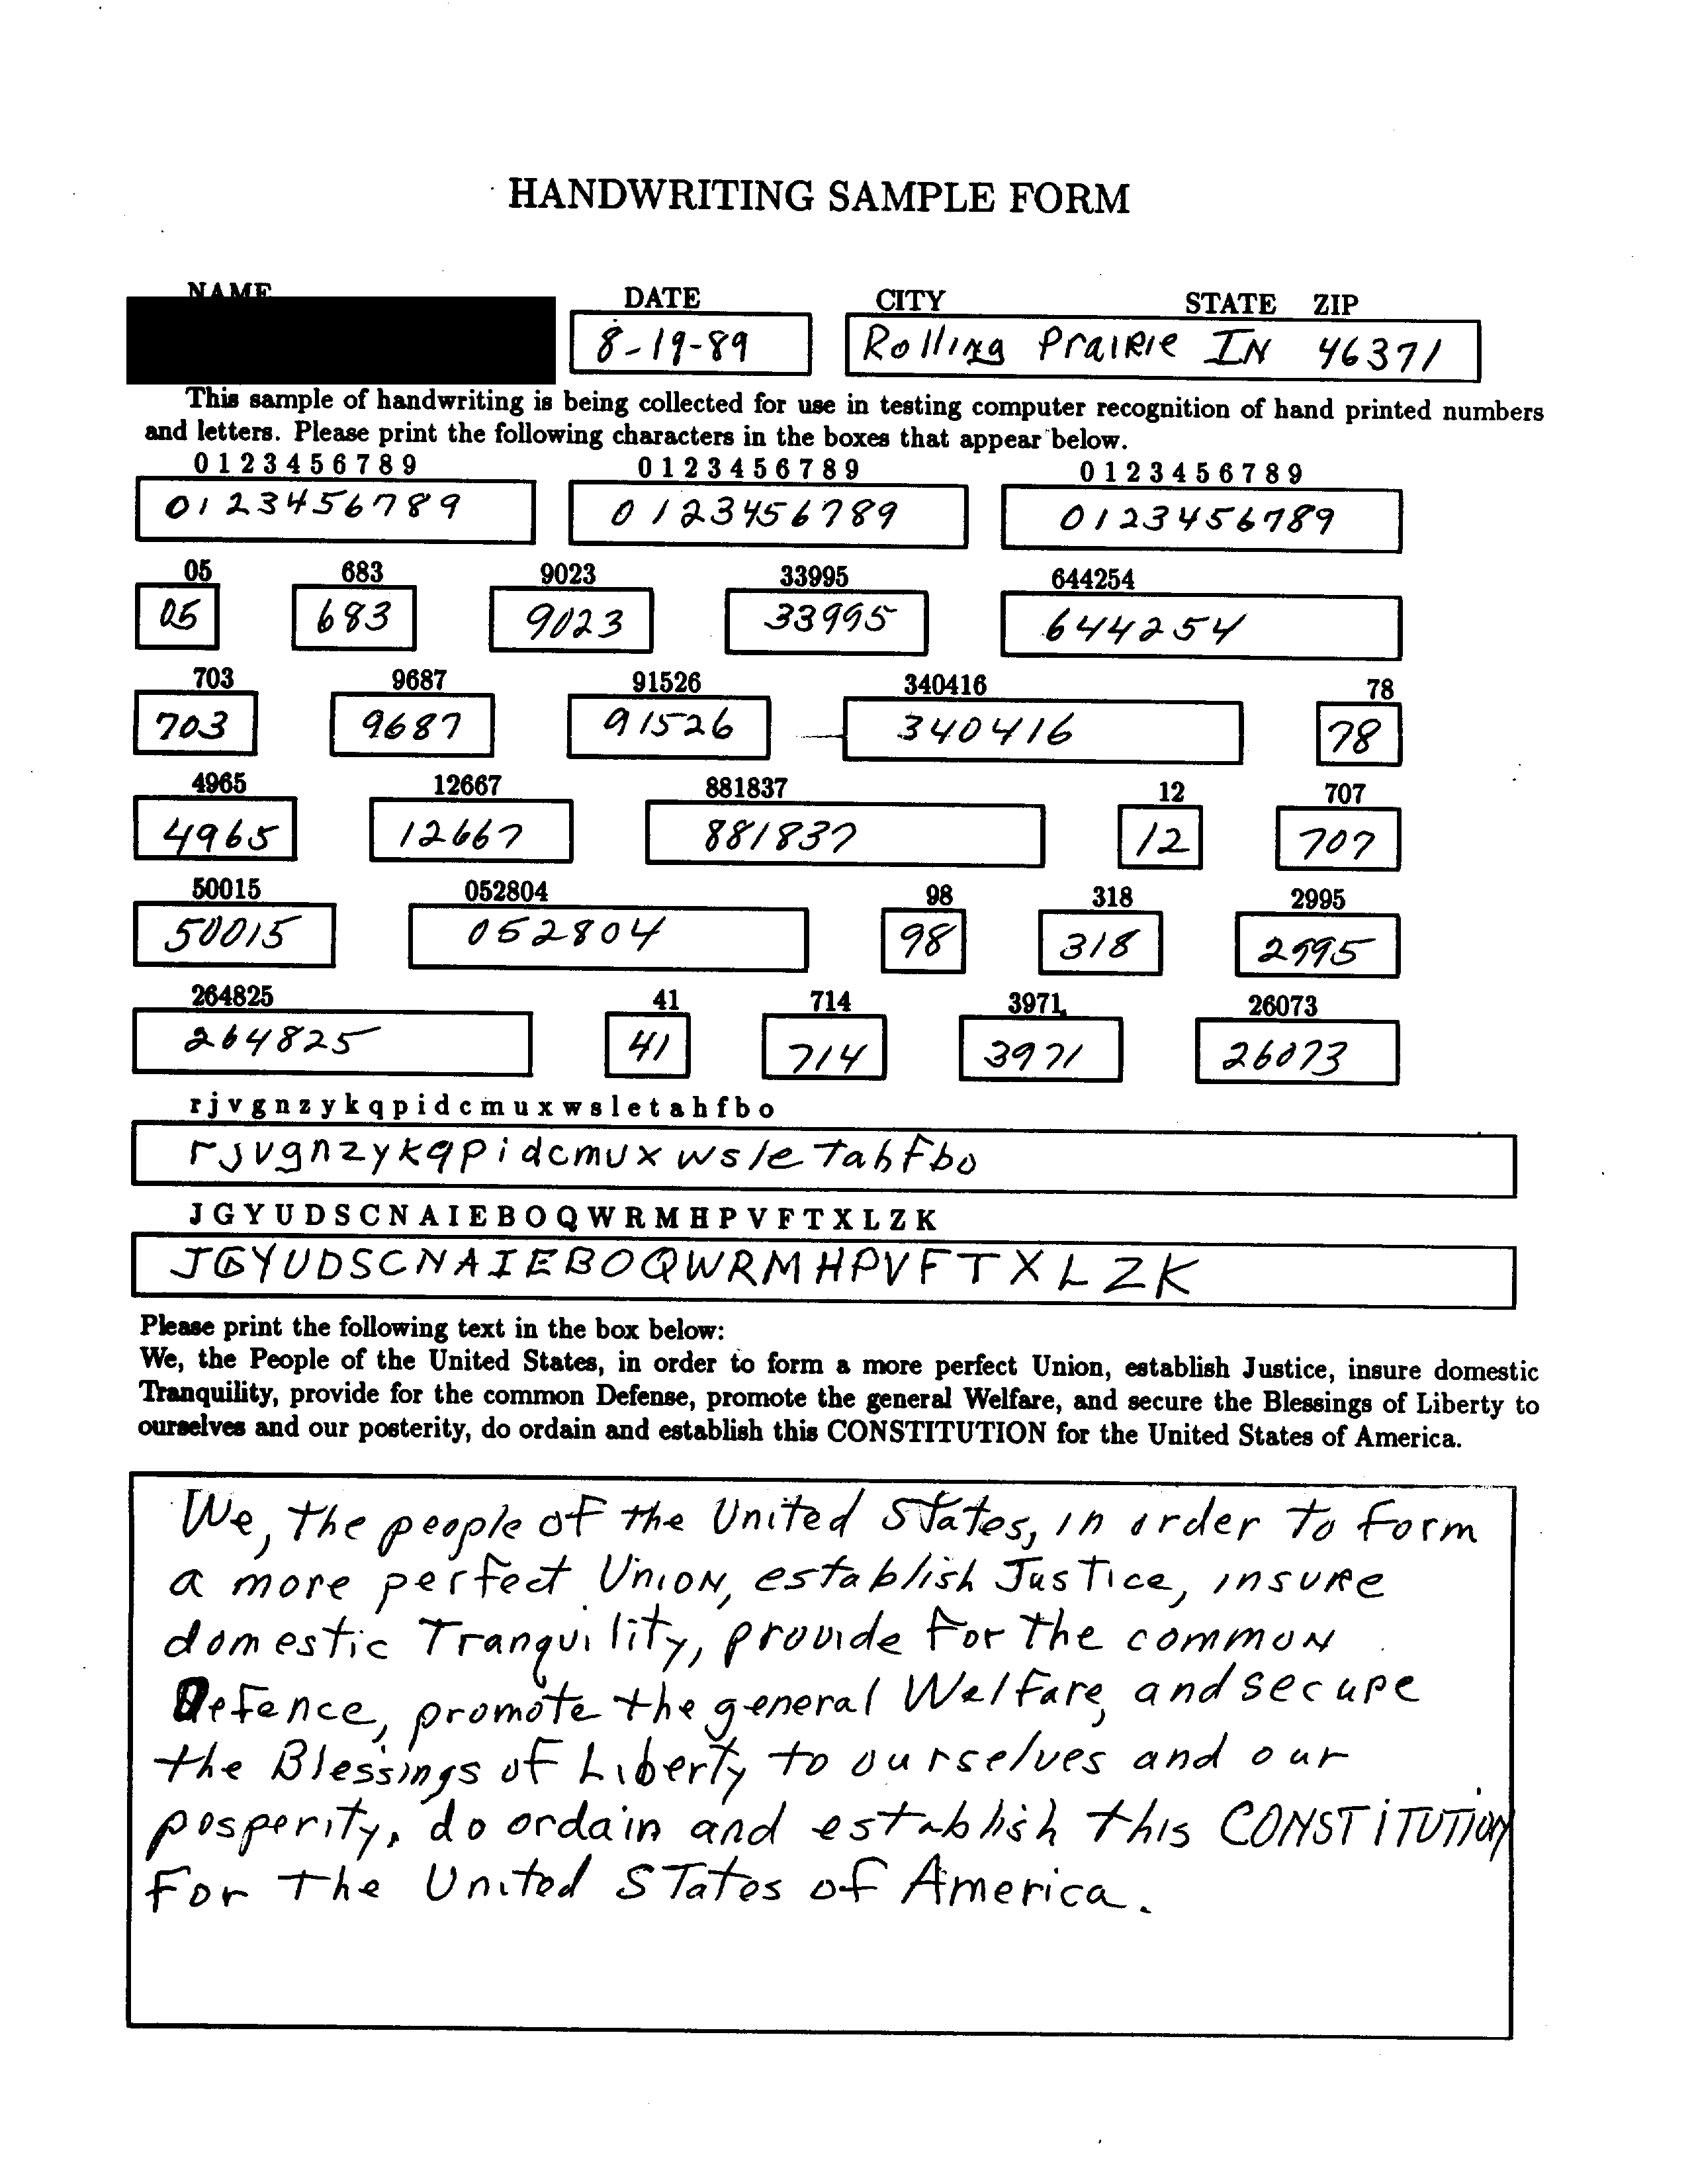 HANDWRITING SAMPLE FORM
NAME DATE CITY STATE ZIP
8-19-89 Rolling Prairie IN 46371
This sample of handwriting is being collected for use in testing computer recognition of hand printed numbers
and letters. Please print the following characters in the boxes that appear below.
0 1 2 3 4 5 6 7 8 9 0 1 2 3 4 5 6 7 8 9 0 1 2 3 4 5 6 7 8 9
0123456789 0123456789 0123456789
05 683 9023 33995 644254
05 683 9023 33995 644254
703 9687 91526 340416 78
703 9687 91526 340416 78
4965 12667 881837 12 707
4965 12667 881837 12 707
50015 052804 98 318 2995
50015 052804 98 318 2995
264825 41 714 3971 26073
264825 41 714 3971 26073
r j v g n z y k q p i d c m u x w s l e t a h f b o
rjvgnzykqpidcmuxwsletahfbo
J G Y U D S C N A I E B O Q W R M H P V F T X L Z K
JGYUDSCNAIEBOQWRMHPVFTXLZK
Please print the following text in the box below:
We, the People of the United States, in order to form a more perfect Union, establish Justice, insure domestic
Tranquility, provide for the common Defense, promote the general Welfare, and secure the Blessings of Liberty to
ourselves and our posterity, do ordain and establish this CONSTITUTION for the United States of America.
We, the people of the United States, in order to form
a more perfect Union, establish Justice, insure
domestic Tranquility, provide for the common
Defence, promote the general Welfare, and secure
the Blessings of Liberty to ourselves and our
posperity, do ordain and establish this CONSTITUTION
For the United States of America.